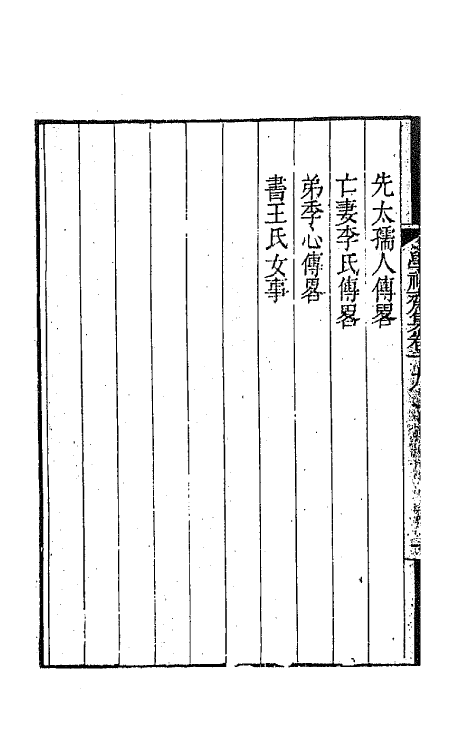 先太孺人傳畧
亡妻李氏傳畧
弟季心傳畧
書王氏女事